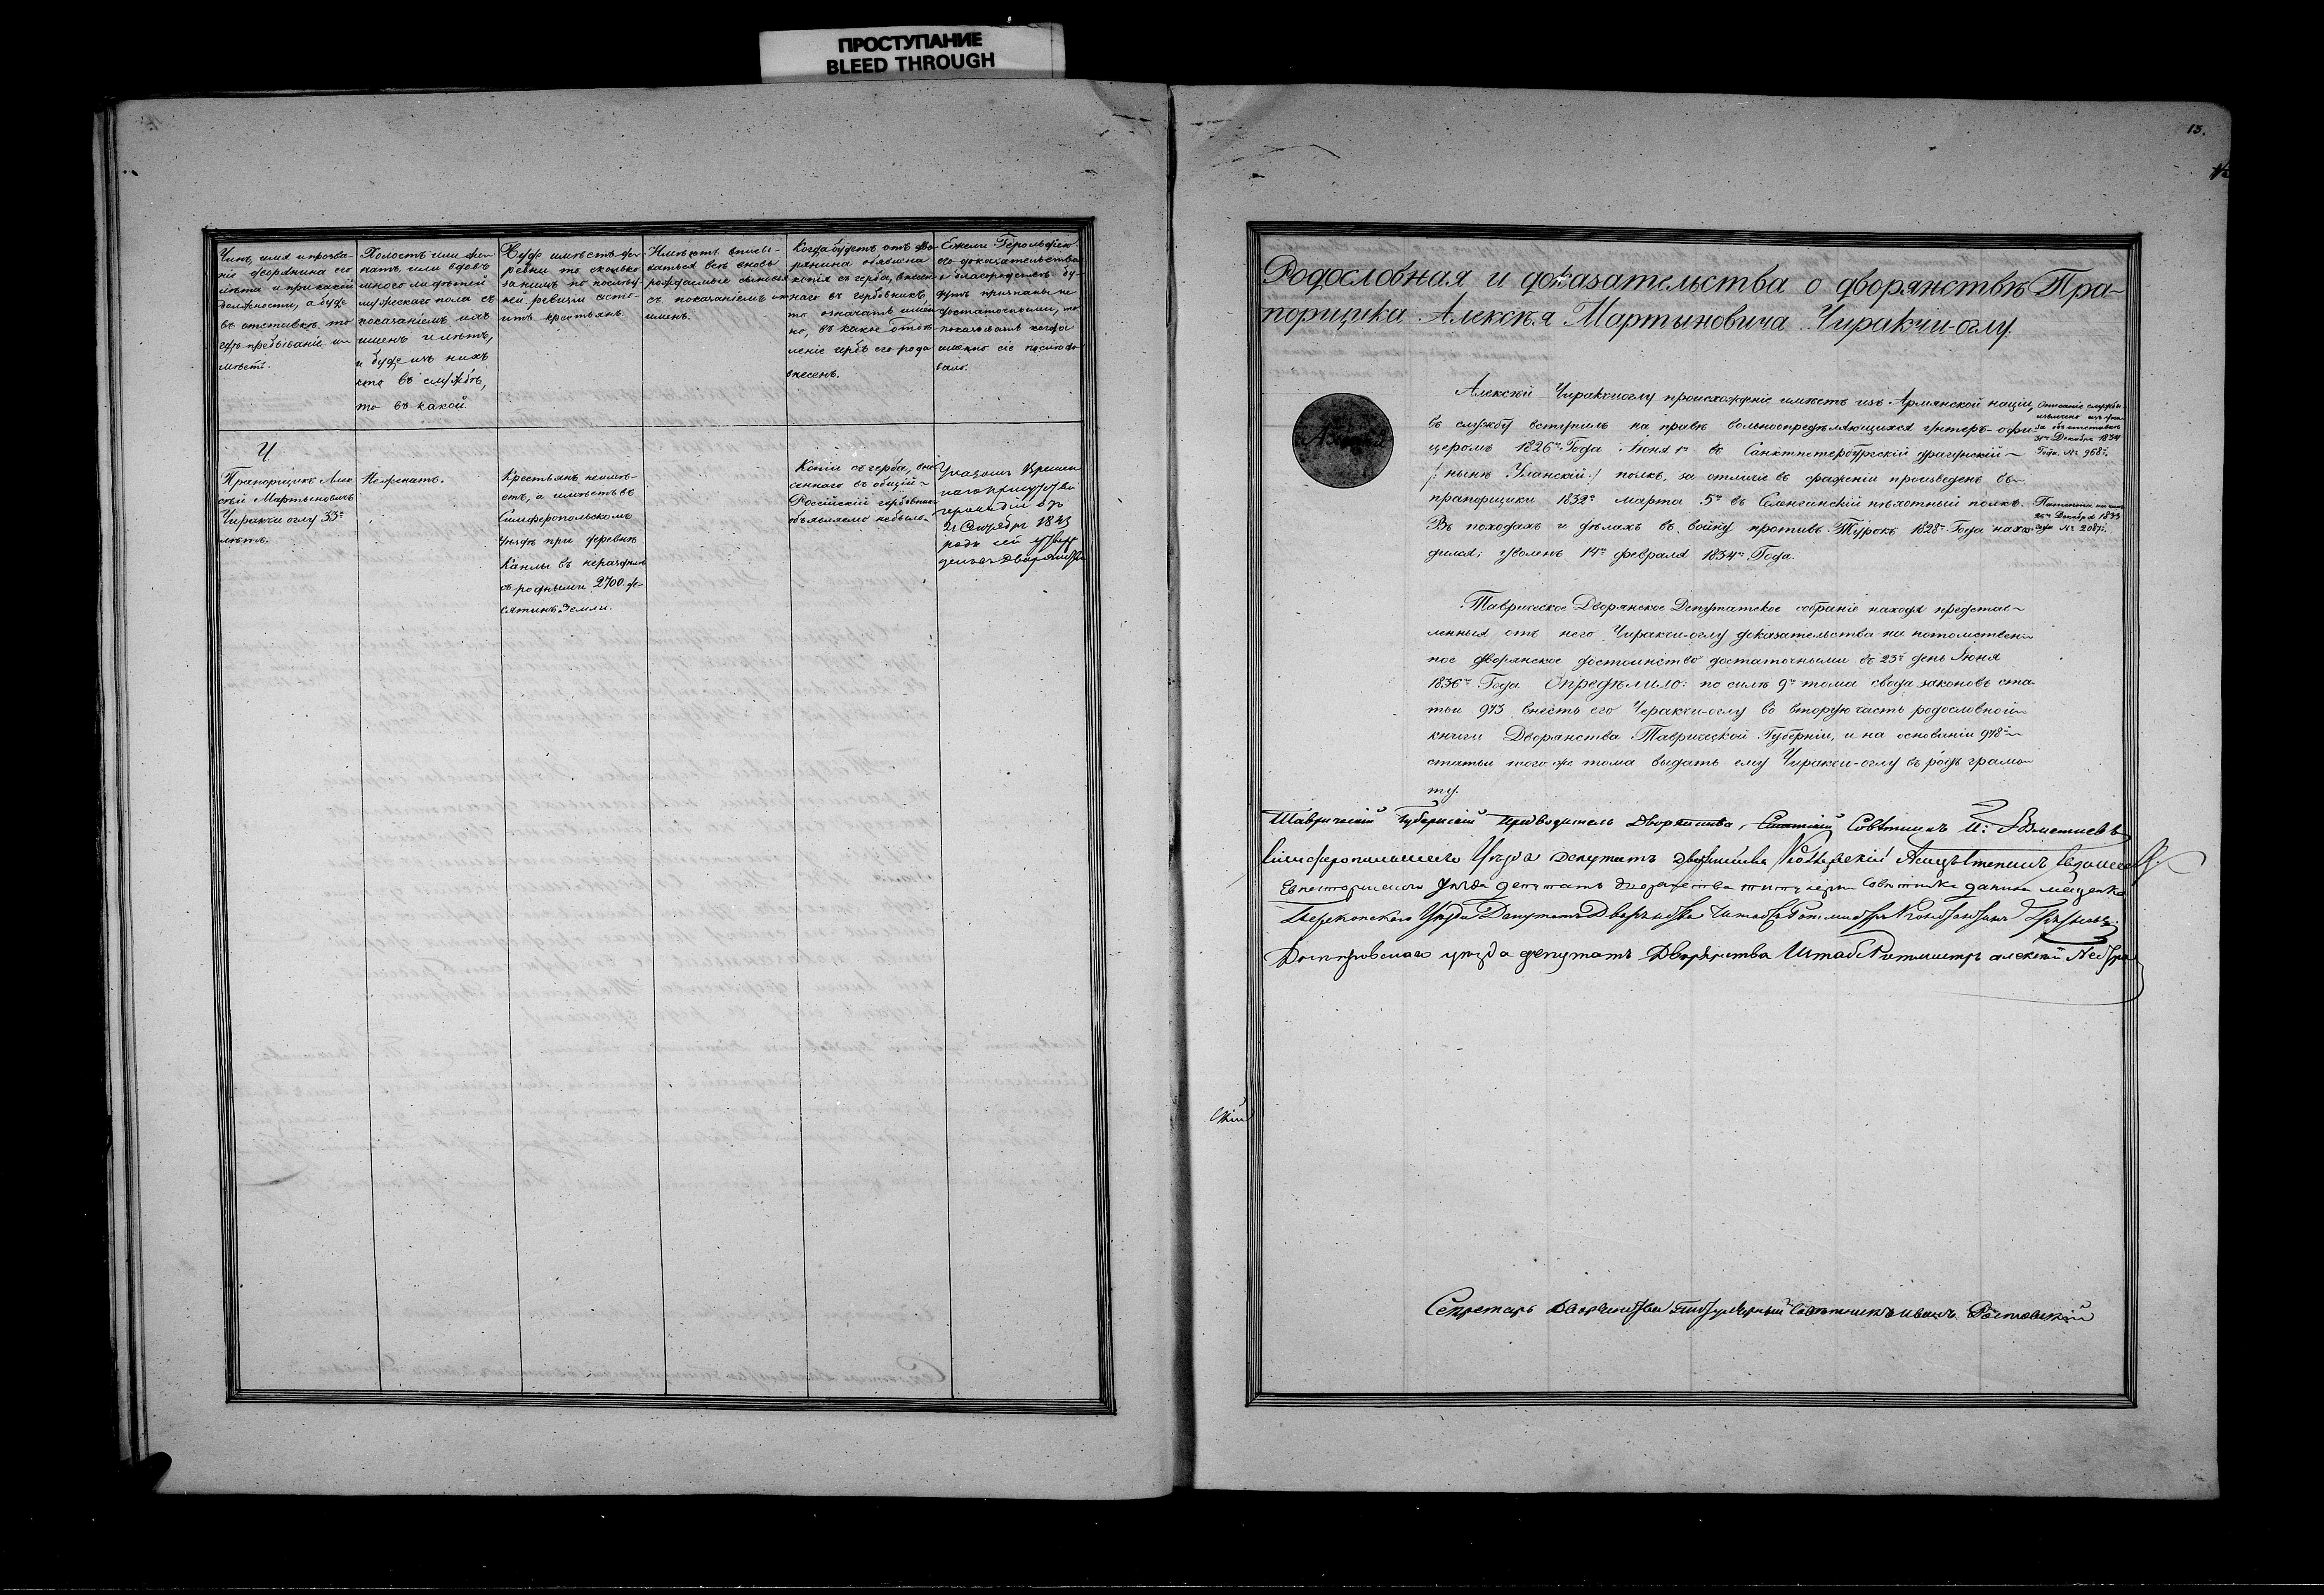 ПРОСТУПАНИЕ
BLEED THROUGH
13.
Чинъ, имя и прозва-
ніе дворянина его
лѣта и при какой
должности, а буде
въ отставкѣ, то
гдѣ пребываніе им-
ѣетъ.
Холостъ или же-
натъ, или вдовъ
много ли дѣтей
мужескаго пола съ
показаніемъ ихъ
именъ и лѣтъ,
и буде изъ нихъ
кто въ службѣ,
то въ какой.
Буде имѣетъ де-
ревни то сколько
за нимъ по послѣд-
ней ревизіи состо-
итъ крестьянъ
Имѣютъ вписы-
ваться всѣ вновь
рождаемые сыновья
съ показаніемъ
именъ.
Когда будетъ отъ дво-
рянина объявлена
копія съ герба, внесен-
наго въ гербовникъ,
то означать имен-
но, въ какое отдѣ-
леніе гербъ его рода
внесенъ.
Ежели Герольдіею
доказательства
о благородствѣ бу-
дутъ признаны не
достаточными, то
показывать когда
именно сіе послѣдо-
вало.
Ч.
Прапорщикъ Але-
ксѣй Мартыновичъ
Чиракчи оглу 33-
лѣтъ.
Неженатъ.
Крестьянъ неимѣ-
етъ, а имѣетъ въ
Симферопольскомъ
Уѣздѣ при деревнѣ
Канлы въ нераздѣлѣ
съ родными 2700. де-
сятинъ Земли.
Копіи съ герба, вне-
сеннаго въ общій
Россійскій гербовникъ
объявляемо небыло.
Указомъ Времен
наго присутствія
герольдіи отъ
1843
родъ сей утверж
денъ въ Дворянствѣ
Родословная и доказательства о дворянствѣ Пра-
порщика Алексѣя Мартыновича Чиракчи-оглу.
Алексѣй Чиракчиоглу происхожденіе имѣетъ изъ Армянской націи,
въ службу вступилъ на правѣ вольноопредѣляющихся унтеръ-офи-
церомъ 1826го Года Іюня 1го въ Санктпетербургскій драгунскій
/:нынѣ Уланскій:/ полкъ, за отличіе въ сраженіи произведенъ въ
прапорщики 1832го марта 5го въ Селенгинскій пѣхотный полкъ.
Въ походахъ и дѣлахъ въ войну противъ Турокъ 1828го Года нахо-
дился; уволенъ 14го февраля 1834го Года.
Описаніе службы
извлечено изъ ука-
за объ отставкѣ
31го Декабря 1834
Года. № 968й.
Патента на чинъ
26го Декабря 1833
года № 2087й.
Таврическое Дворянское Депутатское собраніе находя представ-
ленныя отъ него Чиракчи-оглу доказательства на потомствен-
ное дворянское достоинство достаточными въ 23й день Іюня
1836го Года Опредѣлило: по силѣ 9го тома свода законовъ ста-
тьи 973 внесть его Черакчи-оглу во вторую часть родословной
книги Дворянства Таврической Губерніи, и на основаніи 978й
статьи того же тома выдать ему Чиракчи-оглу въ родъ грамо-
ту.
Таврическій Губернскій Предводитель Дворянства, Статскій Совѣтникъ
Симферопольскаго Уѣзда Депутатъ Дворянства
Евпаторійскаго уѣзда депутатъ дворянства титулярный Совѣтникъ
Перекопскаго Уѣзда Депутатъ Дворянства Штабсъ Ротмистръ Константинъ
Днѣпровскаго уѣзда депутатъ Дворянства Штабъ Ротмистръ алексѣй
Секретарь Дворянства Титулярный Совѣтникъ Иванъ